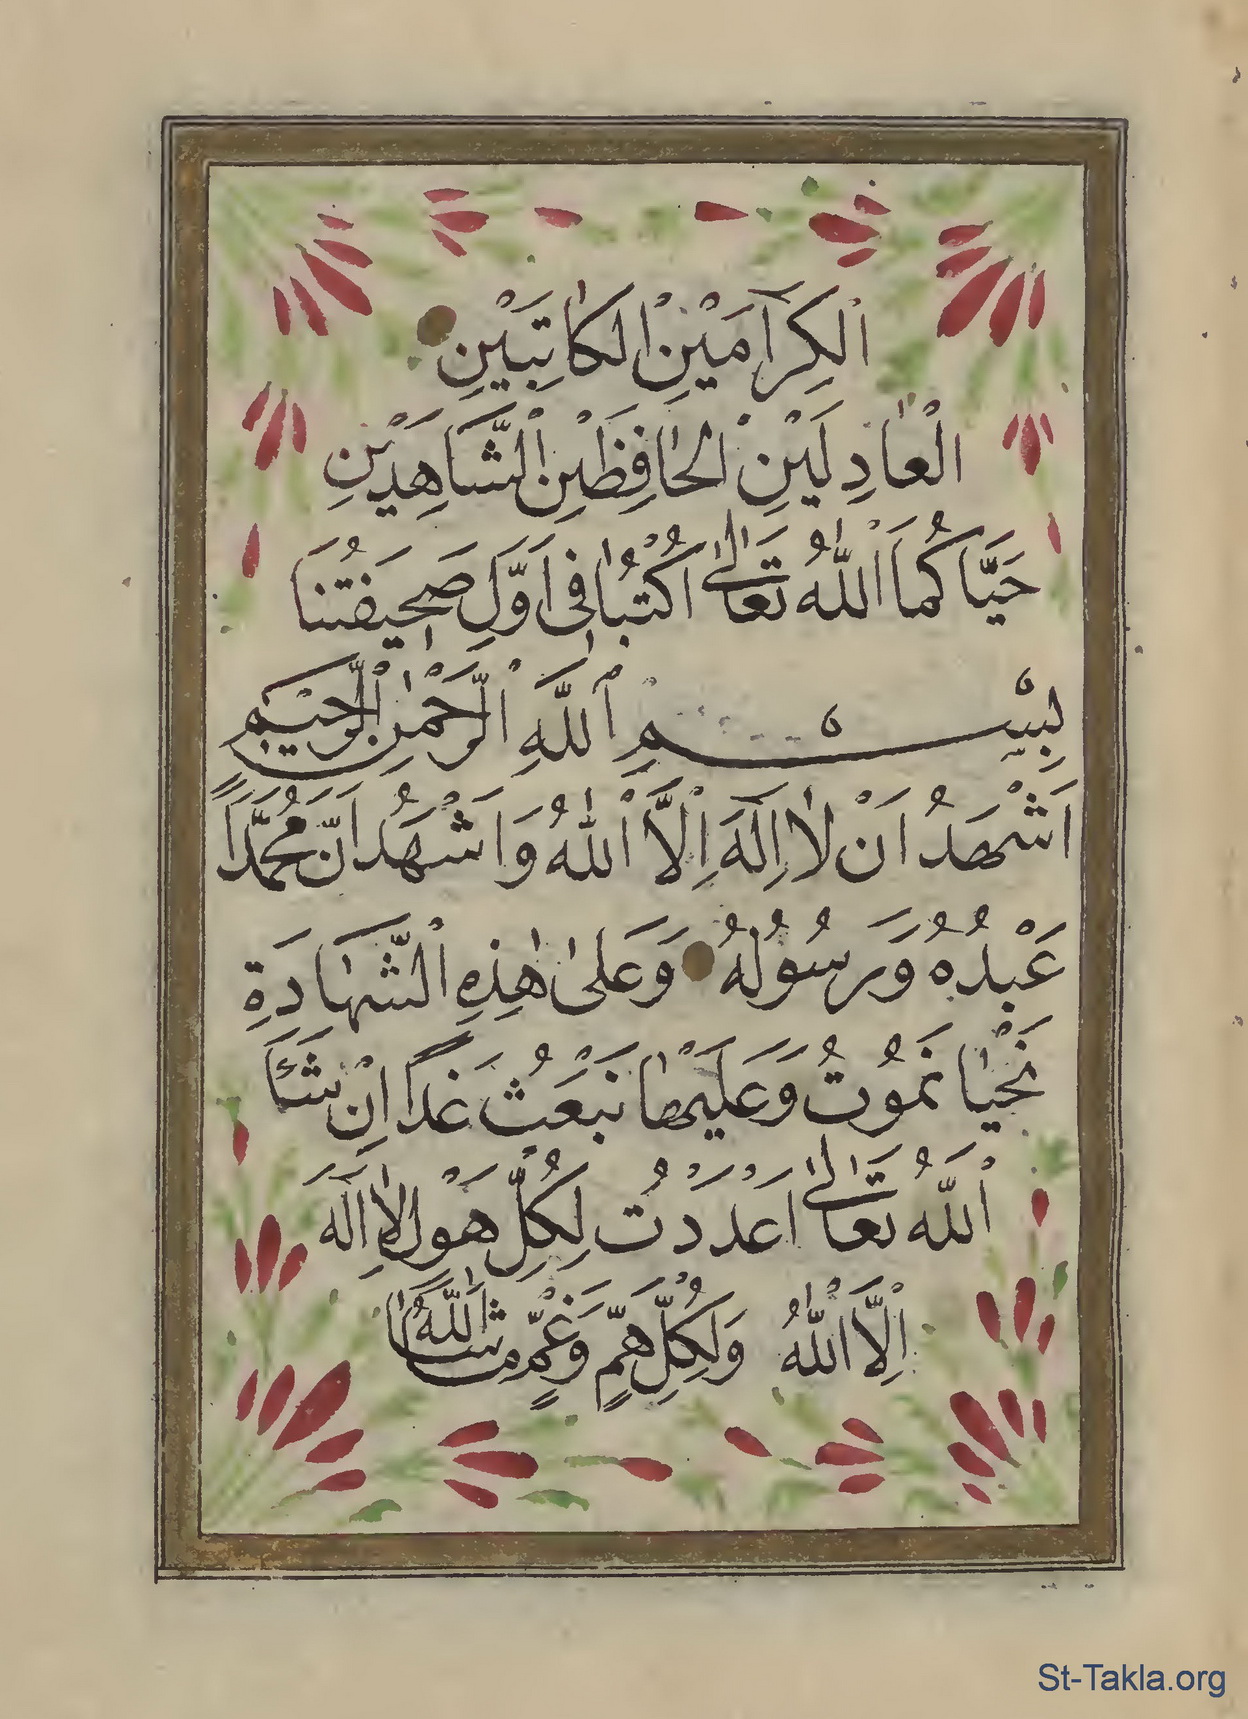 اَلْكِرَآمَيْنِ الْكَاتِبَيْنِ
الْعَادِلَيْنِ الْحَافِظَيْنِ الشَّاهِدَيْنِ
حَيَّاكُمَا اللهُ تَعَالٰى اُكْتُبَا فِى اَوَّلِ صَحِيفَتِنَا
بِسْمِ اللّٰهِ الرَّحْمٰنِ الرَّحِيْمِ
اَشْهَدُ اَنْ لَا اِلٰهَ اِلَّا اللهُ وَاَشْهَدُ اَنَّ مُحَمَّدًا
عَبْدُهُ وَرَسُولُهُ وَعَلٰى هٰذِهِ الشَّهَادَةِ
نَحْيَا نَمُوتُ وَعَلَيْهَا نُبْعَثُ غَدًا اِنْ شَآءَ
اللهُ تَعَالٰى اَعْدَدْتُ لِكُلِّ هَوْلٍ لَا اِلٰهَ
اِلَّا اللهُ وَلِكُلِّ هَمٍّ وَغَمٍّ مَاشَاءَ اللهُ
St-Takla.org